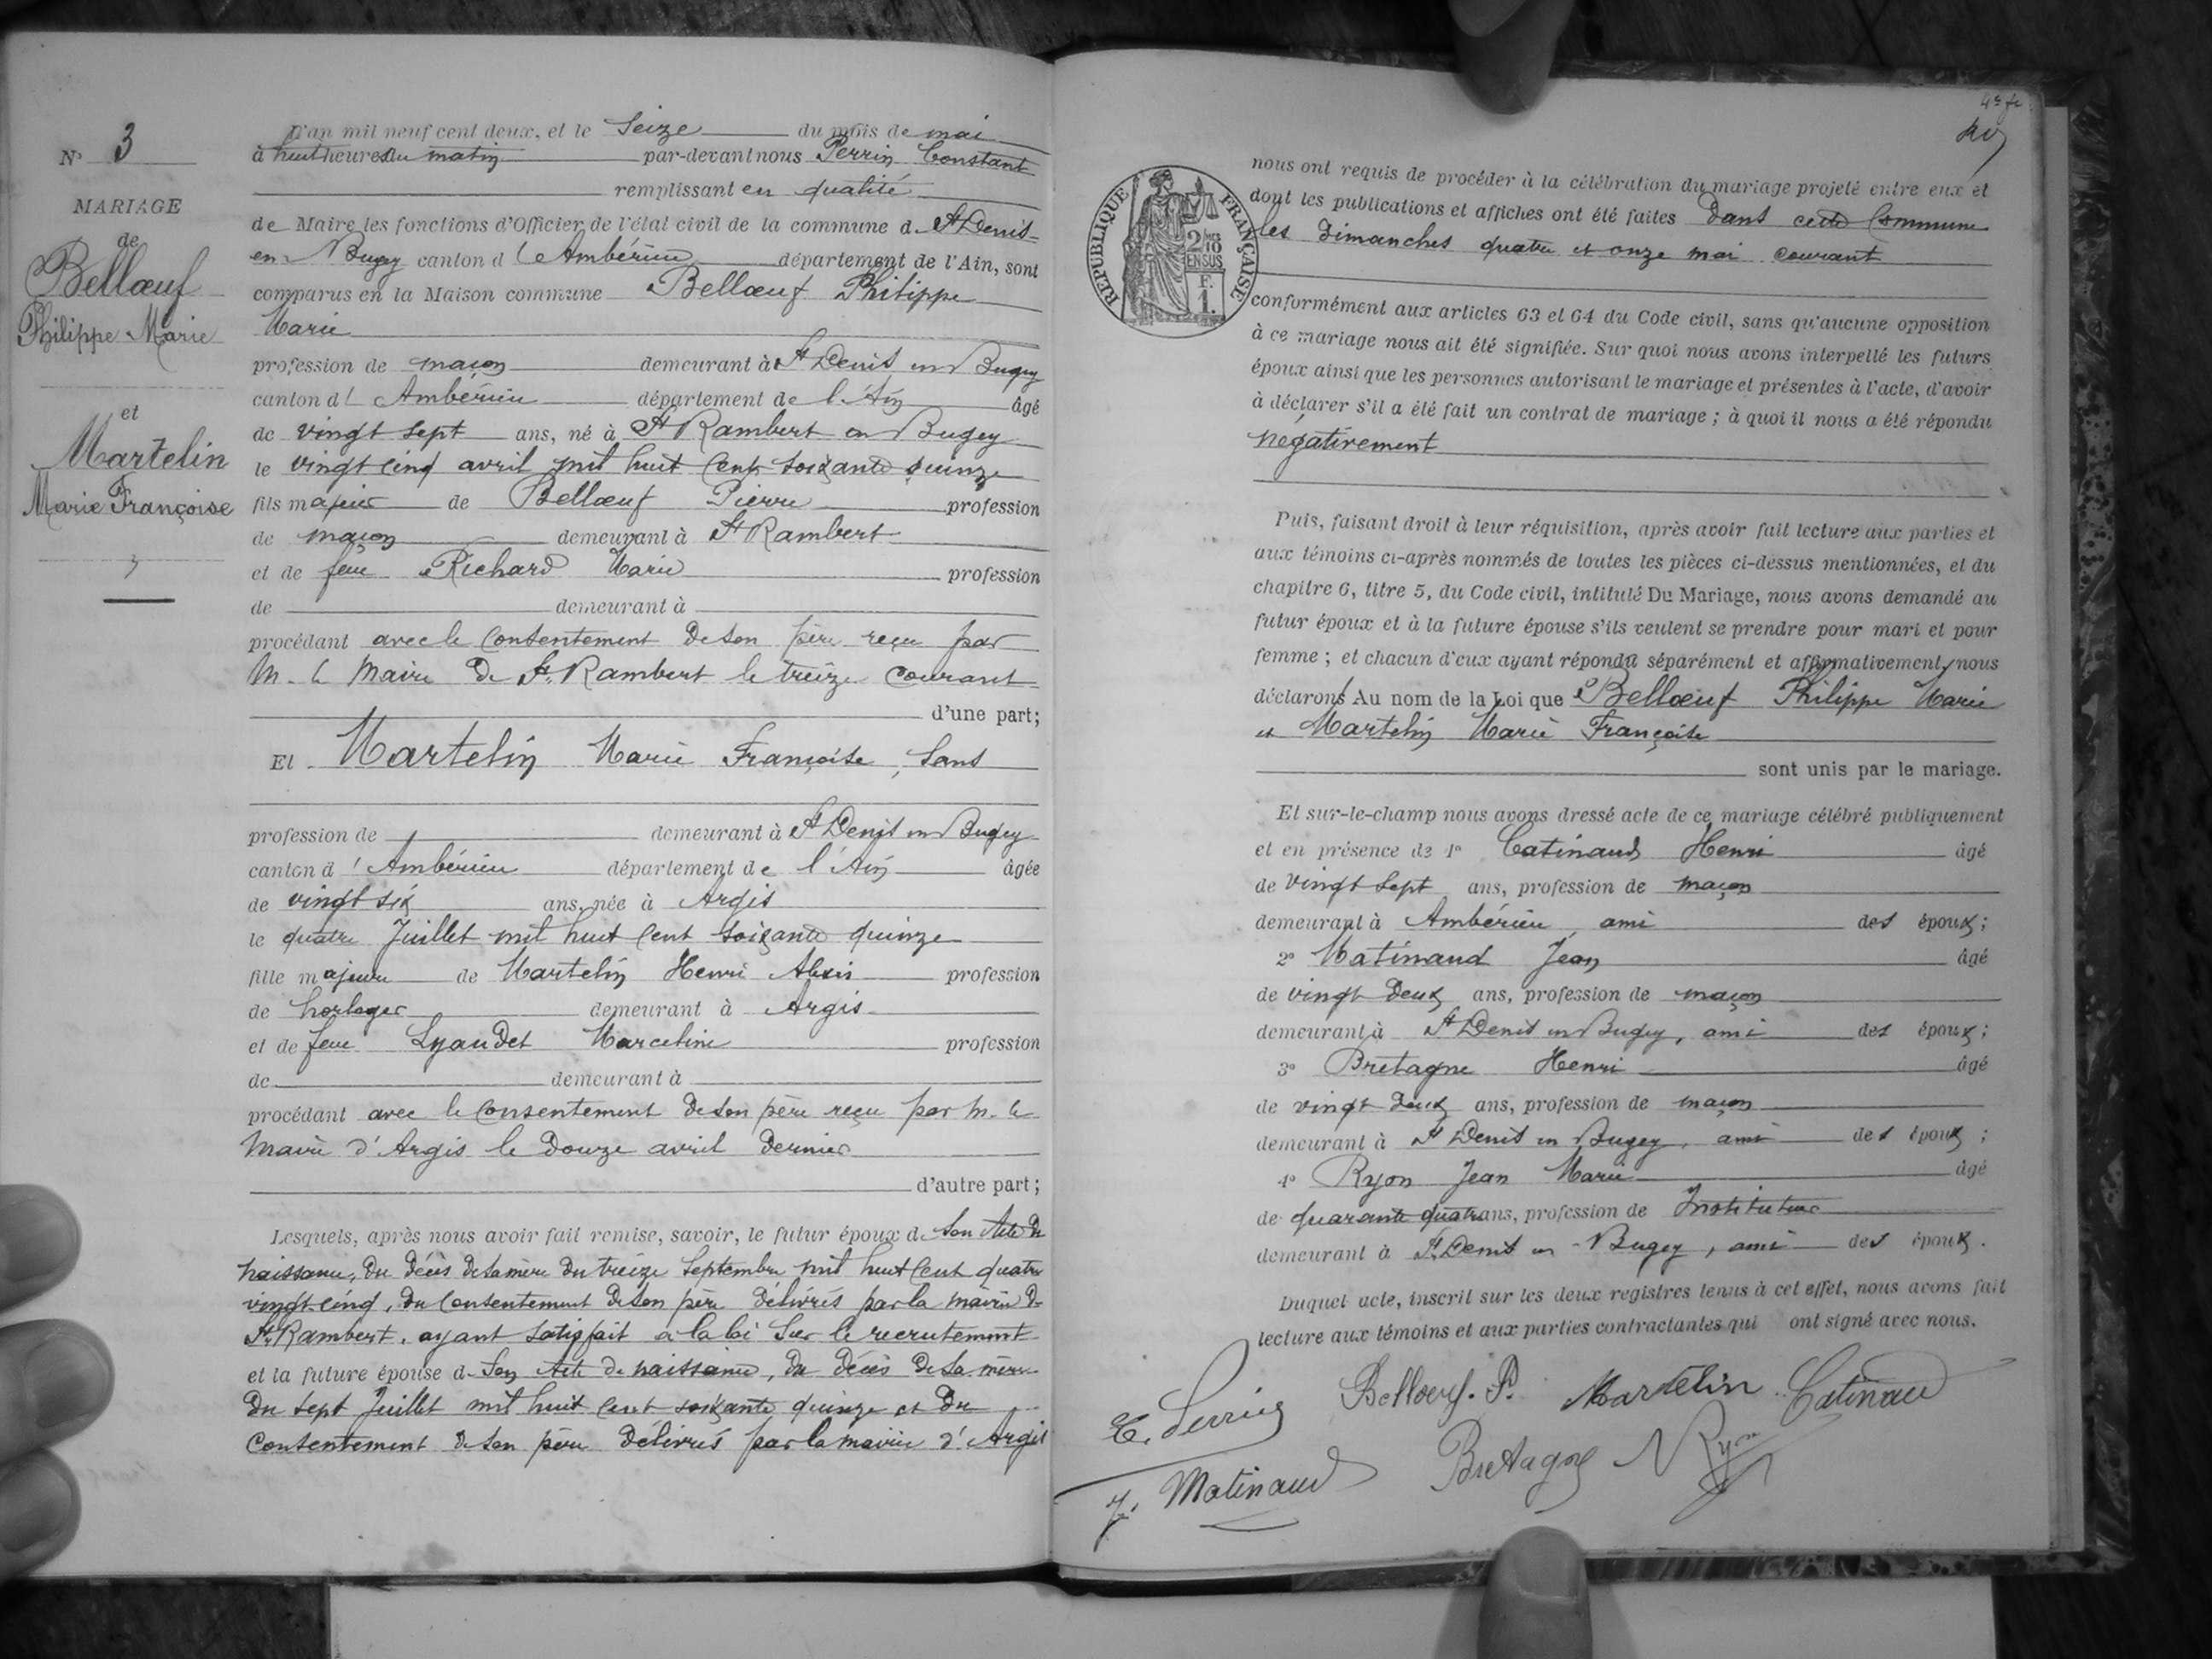 N° 3
MARIAGE
de
Bellœuf
Philippe Marie
et
Martelin
Marie Françoise
3
L'an mil neuf cent deux, et le Seize du mois de mai
à huit heures du matin par-devant nous Perrin Constant
remplissant en qualité
de Maire les fonctions d'Officier de l'état civil de la commune de St Denis-
en Bugey canton d'Ambérieu département de l'Ain, sont
comparus en la Maison commune Bellœuf Philippe
Marie
profession de maçon demeurant à St Denis en Bugey
canton d'Ambérieu département de l'Ain âgé
de vingt sept ans, né à St Rambert en Bugey
le vingt cinq avril mil huit cent soixante quinze
fils majeur de Bellœuf Pierre profession
de maçon demeurant à St Rambert
et de feue Richard Marie profession
de demeurant à
procédant avec le consentement de son père reçu par
M. le Maire de St Rambert le treize courant
d'une part;
Et Martelin Marie Françoise, sans
profession de demeurant à St Denis en Bugey
canton d'Ambérieu département de l'Ain âgée
de vingt six ans, née à Argis
le quatre Juillet mil huit cent soixante quinze
fille majeure de Martelin Henri Alexis profession
de horloger demeurant à Argis
et de feue Lyaudet Marceline profession
de demeurant à
procédant avec le consentement de son père reçu par M. le
Maire d'Argis le douze avril dernier
d'autre part;
Lesquels, après nous avoir fait remise, savoir, le futur époux de son Acte de
naissance, du décès de sa mère du treize Septembre mil huit cent quatre
vingt-cinq, du consentement de son père délivrés par la mairie de
St Rambert, ayant satisfait à la loi sur le recrutement
et la future épouse de son Acte de naissance, du décès de sa mère
du sept Juillet mil huit cent soixante quinze et du
consentement de son père délivrés par la mairie d'Argis
4e f.
RÉPUBLIQUE FRANÇAISE
2/10
EN SUS
F.
1.
nous ont requis de procéder à la célébration du mariage projeté entre eux et
dont les publications et affiches ont été faites dans cette Commune
les dimanches quatre et onze mai courant
conformément aux articles 63 et 64 du Code civil, sans qu'aucune opposition
à ce mariage nous ait été signifiée. Sur quoi nous avons interpellé les futurs
époux ainsi que les personnes autorisant le mariage et présentes à l'acte, d'avoir
à déclarer s'il a été fait un contrat de mariage; à quoi il nous a été répondu
négativement
Puis, faisant droit à leur réquisition, après avoir fait lecture aux parties et
aux témoins ci-après nommés de toutes les pièces ci-dessus mentionnées, et du
chapitre 6, titre 5, du Code civil, intitulé Du Mariage, nous avons demandé au
futur époux et à la future épouse s'ils veulent se prendre pour mari et pour
femme; et chacun d'eux ayant répondu séparément et affirmativement, nous
déclarons Au nom de la Loi que Bellœuf Philippe Marie
et Martelin Marie Françoise
sont unis par le mariage.
Et sur-le-champ nous avons dressé acte de ce mariage célébré publiquement
et en présence de 1° Catinaud Henri âgé
de vingt sept ans, profession de maçon
demeurant à Ambérieu, ami des époux;
2° Matinaud Jean âgé
de vingt deux ans, profession de maçon
demeurant à St Denis en Bugey, ami des époux;
3° Bretagne Henri âgé
de vingt deux ans, profession de maçon
demeurant à St Denis en Bugey, ami des époux;
4° Ryon Jean Marie âgé
de quarante quatre ans, profession de Instituteur
demeurant à St Denis en Bugey, ami des époux.
Duquel acte, inscrit sur les deux registres tenus à cet effet, nous avons fait
lecture aux témoins et aux parties contractantes qui ont signé avec nous.
C. Perrin Bellœuf. P. Martelin Catinaud
J. Matinaud Bretagne Ryon